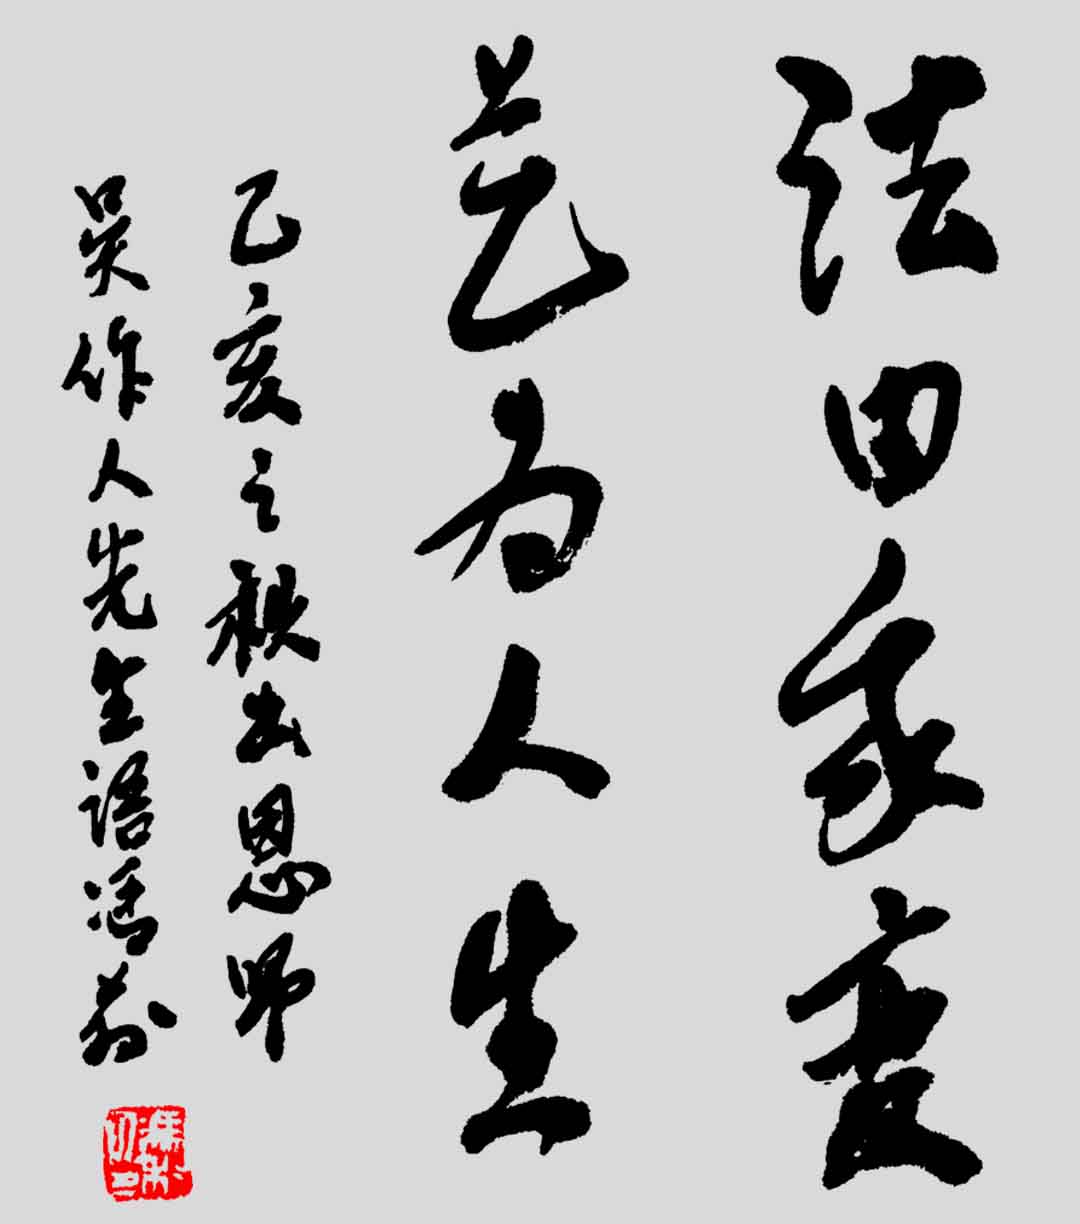 法由我变
艺为人生
乙亥之秋书恩师
吴作人先生语